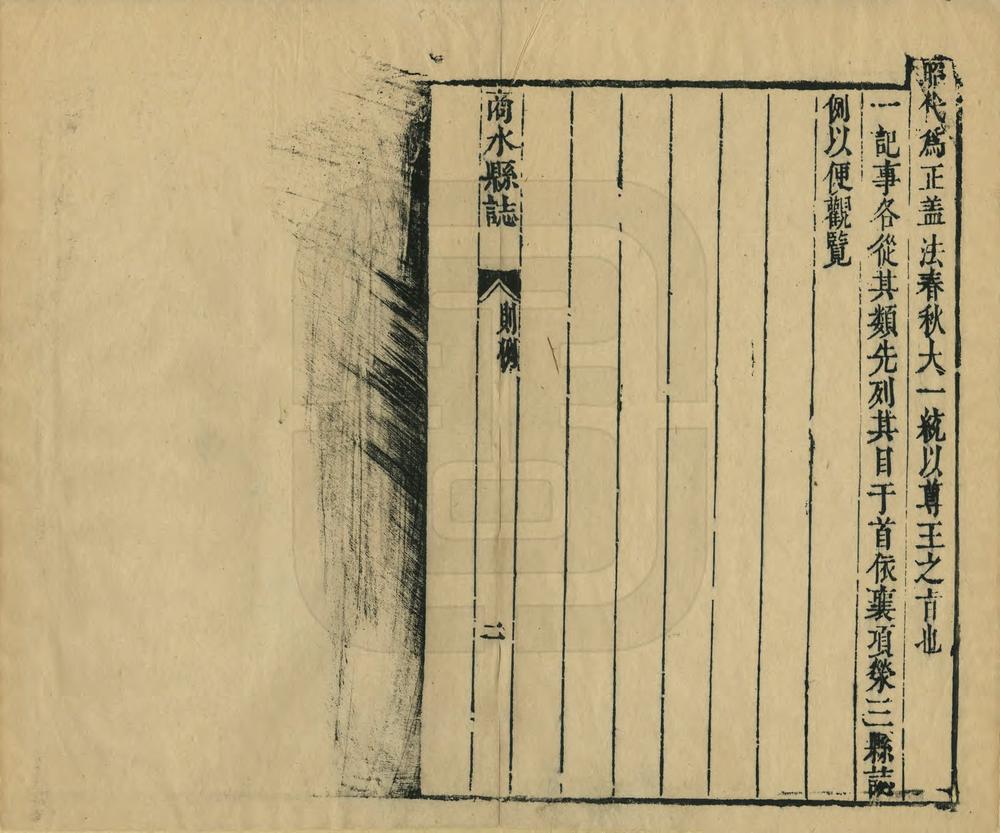 昭代爲正盖法春秋大一統以尊王之旨也
一記事各從其類先列其目于首依襄項滎三縣誌
例以便觀覽
商水縣誌
則例
二